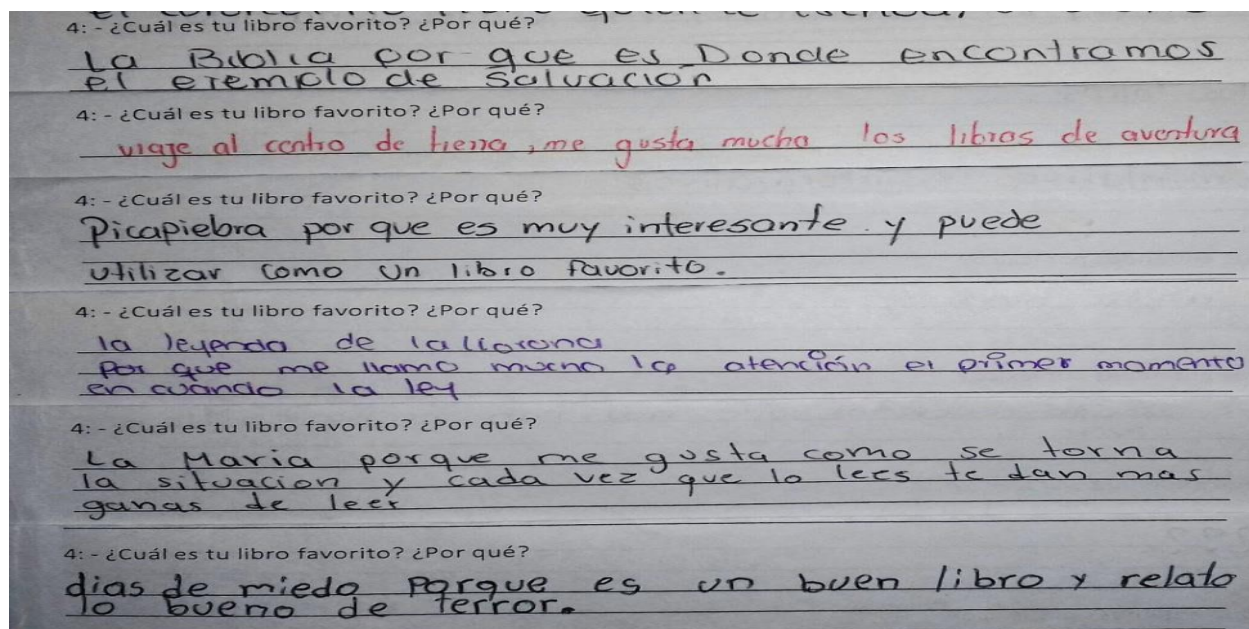 4: - ¿Cuál es tu libro favorito? ¿Por qué?
La Biblia por que es Donde encontramos
el ejemplo de Salvación
4: - ¿Cuál es tu libro favorito? ¿Por qué?
viaje al centro de tierra, me gusta mucho los libros de aventura
4: - ¿Cuál es tu libro favorito? ¿Por qué?
Picapiebra por que es muy interesante y puede
utilizar como un libro favorito.
4: - ¿Cuál es tu libro favorito? ¿Por qué?
la leyenda de la llorona
Por que me llamo mucho la atención el primer momento
en cuándo la ley
4: - ¿Cuál es tu libro favorito? ¿Por qué?
La Maria porque me gusta como se torna
la situacion y cada vez que lo lees te dan mas
ganas de leer
4: - ¿Cuál es tu libro favorito? ¿Por qué?
dias de miedo Porque es un buen libro y relato
lo bueno de terror.